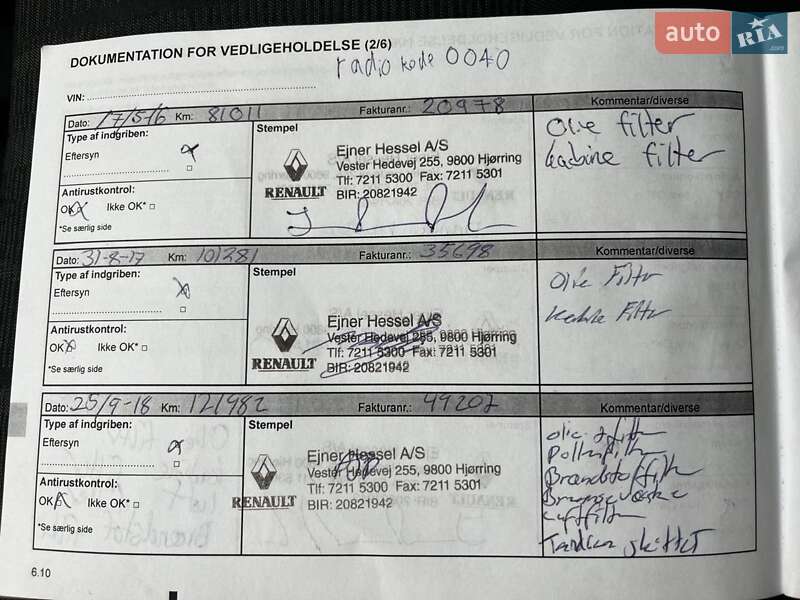 auto RIA .com
DOKUMENTATION FOR VEDLIGEHOLDELSE (2/6)
radio kode 0040
VIN:
Dato: 17/5-16 Km: 81011 Fakturanr.: 20978 Kommentar/diverse
Type af indgriben:
Eftersyn
Antirustkontrol:
OK Ikke OK*
*Se særlig side
Stempel
RENAULT
Ejner Hessel A/S
Vester Hedevej 255, 9800 Hjørring
Tlf: 7211 5300 Fax: 7211 5301
BIR: 20821942
Olie filter
kabine filter
Dato: 31-8-17 Km: 101281 Fakturanr.: 35698 Kommentar/diverse
Type af indgriben:
Eftersyn
Antirustkontrol:
OK Ikke OK*
*Se særlig side
Stempel
RENAULT
Ejner Hessel A/S
Vester Hedevej 255, 9800 Hjørring
Tlf: 7211 5300 Fax: 7211 5301
BIR: 20821942
Olie Filter
Filter
Dato: 25/9-18 Km: 121982 Fakturanr.: 49207 Kommentar/diverse
Type af indgriben:
Eftersyn
Antirustkontrol:
OK Ikke OK*
*Se særlig side
Stempel
RENAULT
Ejner Hessel A/S
Vester Hedevej 255, 9800 Hjørring
Tlf: 7211 5300 Fax: 7211 5301
BIR: 20821942
Pollenfilter
Brændstoffilter
Bremsevæske
Luftfilter
6.10